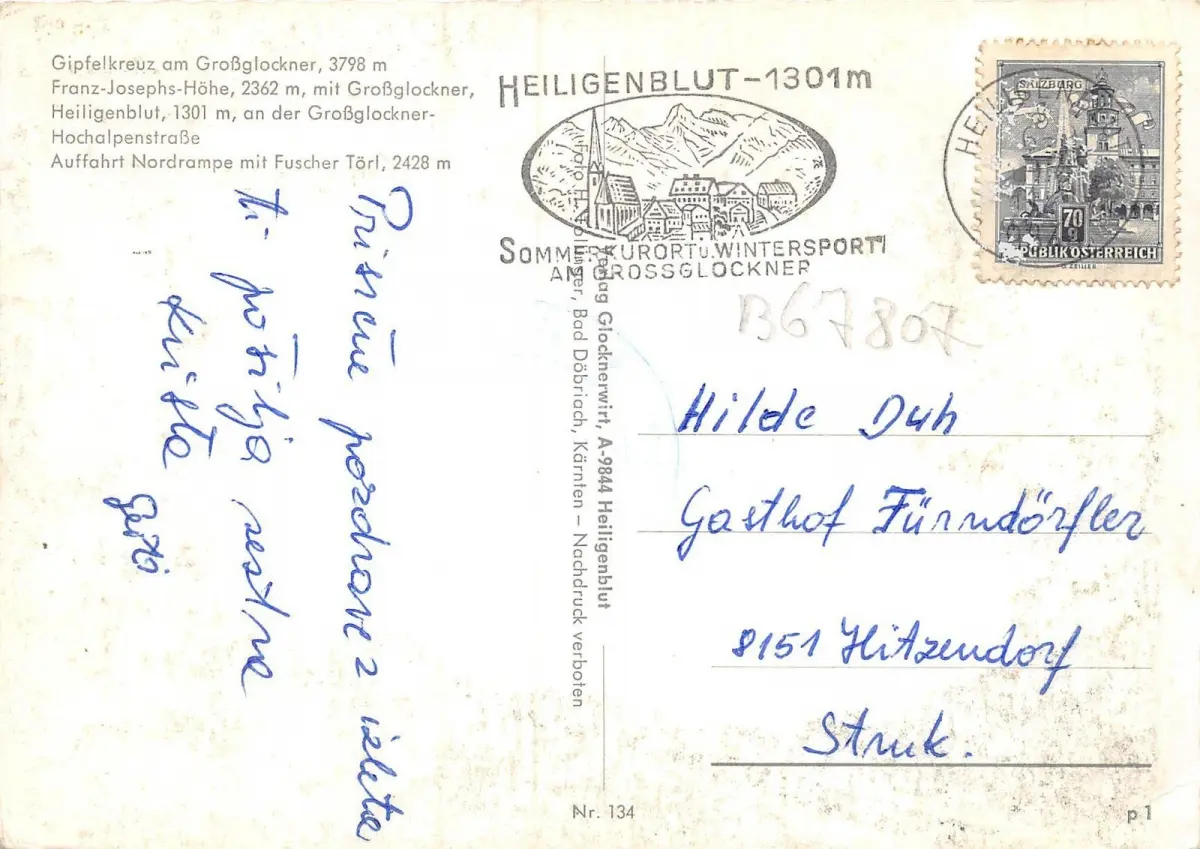 Gipfelkreuz am Großglockner, 3798 m
Franz-Josephs-Höhe, 2362 m, mit Großglockner,
Heiligenblut, 1301 m, an der Großglockner-
Hochalpenstraße
Auffahrt Nordrampe mit Fuscher Törl, 2428 m
HEILIGENBLUT-1301m
SOMMERKURORT U. WINTERSPORT
AM GROSSGLOCKNER
SALZBURG
70
g
REPUBLIK ÖSTERREICH
Prisrčne pozdrave z izleta
ti pošilja sestra
Krista
Verlag Glocknerwirt, A-9844 Heiligenblut
Bad Döbriach, Kärnten – Nachdruck verboten
B67807
Hilde Duh
Gasthof Fürndörfler
8151 Hitzendorf
Struk.
Nr. 134
p 1